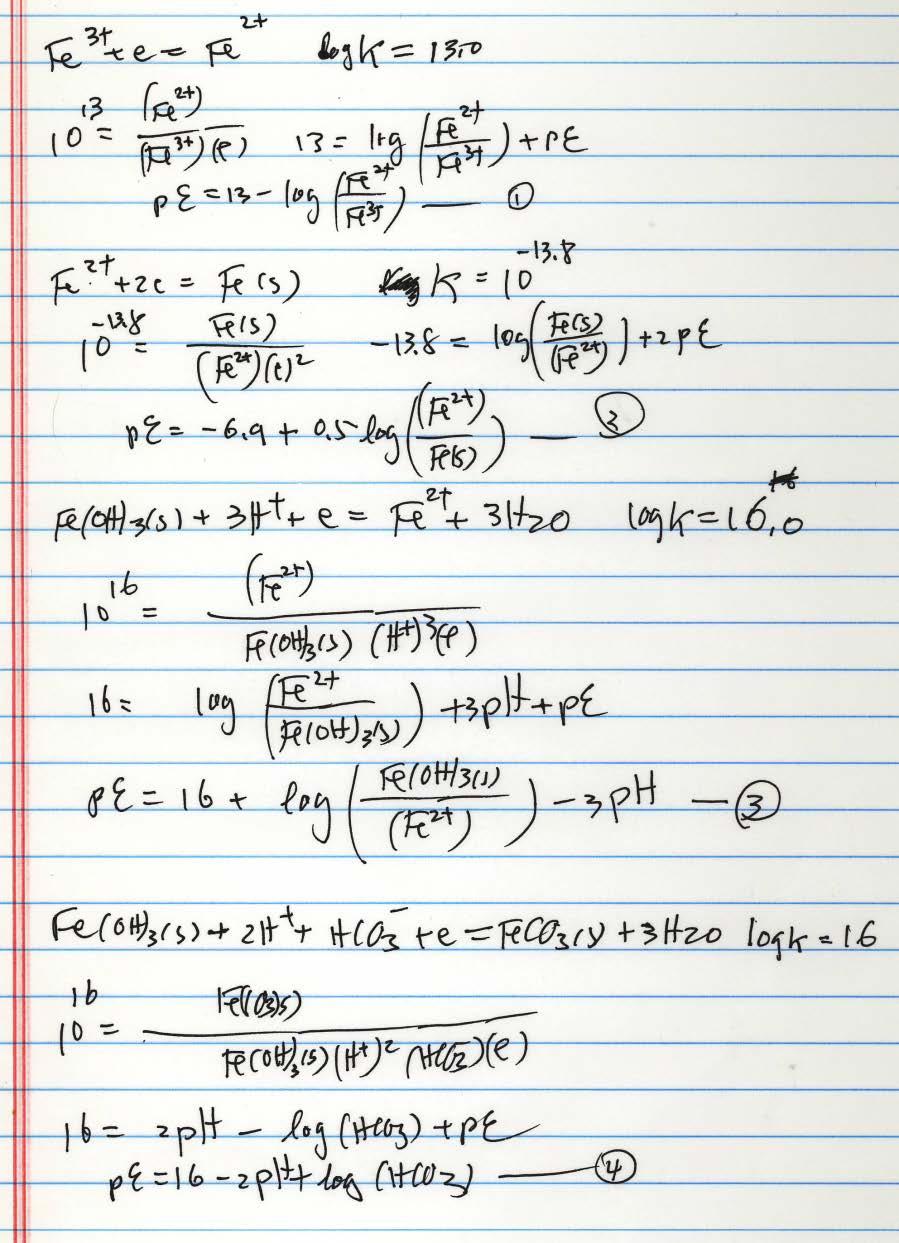 Fe³⁺ + e = Fe²⁺ log K = 13.0
10¹³ = (Fe²⁺) / (Fe³⁺)(e) 13 = log (Fe²⁺ / Fe³⁺) + pε
pε = 13 - log (Fe²⁺ / Fe³⁺) — ①
Fe²⁺ + 2e = Fe(s) K = 10^-13.8
10^-13.8 = Fe(s) / (Fe²⁺)(e)² -13.8 = log (Fe(s) / (Fe²⁺)) + 2pε
pε = -6.9 + 0.5 log ((Fe²⁺) / Fe(s)) — ②
Fe(OH)₃(s) + 3H⁺ + e = Fe²⁺ + 3H₂O log K = 16.0
10¹⁶ = (Fe²⁺) / Fe(OH)₃(s) (H⁺)³(e)
16 = log (Fe²⁺ / Fe(OH)₃(s)) + 3pH + pε
pε = 16 + log (Fe(OH)₃(s) / (Fe²⁺)) - 3pH — ③
Fe(OH)₃(s) + 2H⁺ + HCO₃⁻ + e = FeCO₃(s) + 3H₂O log K = 16
10¹⁶ = FeCO₃(s) / Fe(OH)₃(s) (H⁺)² (HCO₃⁻)(e)
16 = 2pH - log (HCO₃) + pε
pε = 16 - 2pH + log (HCO₃) — ④